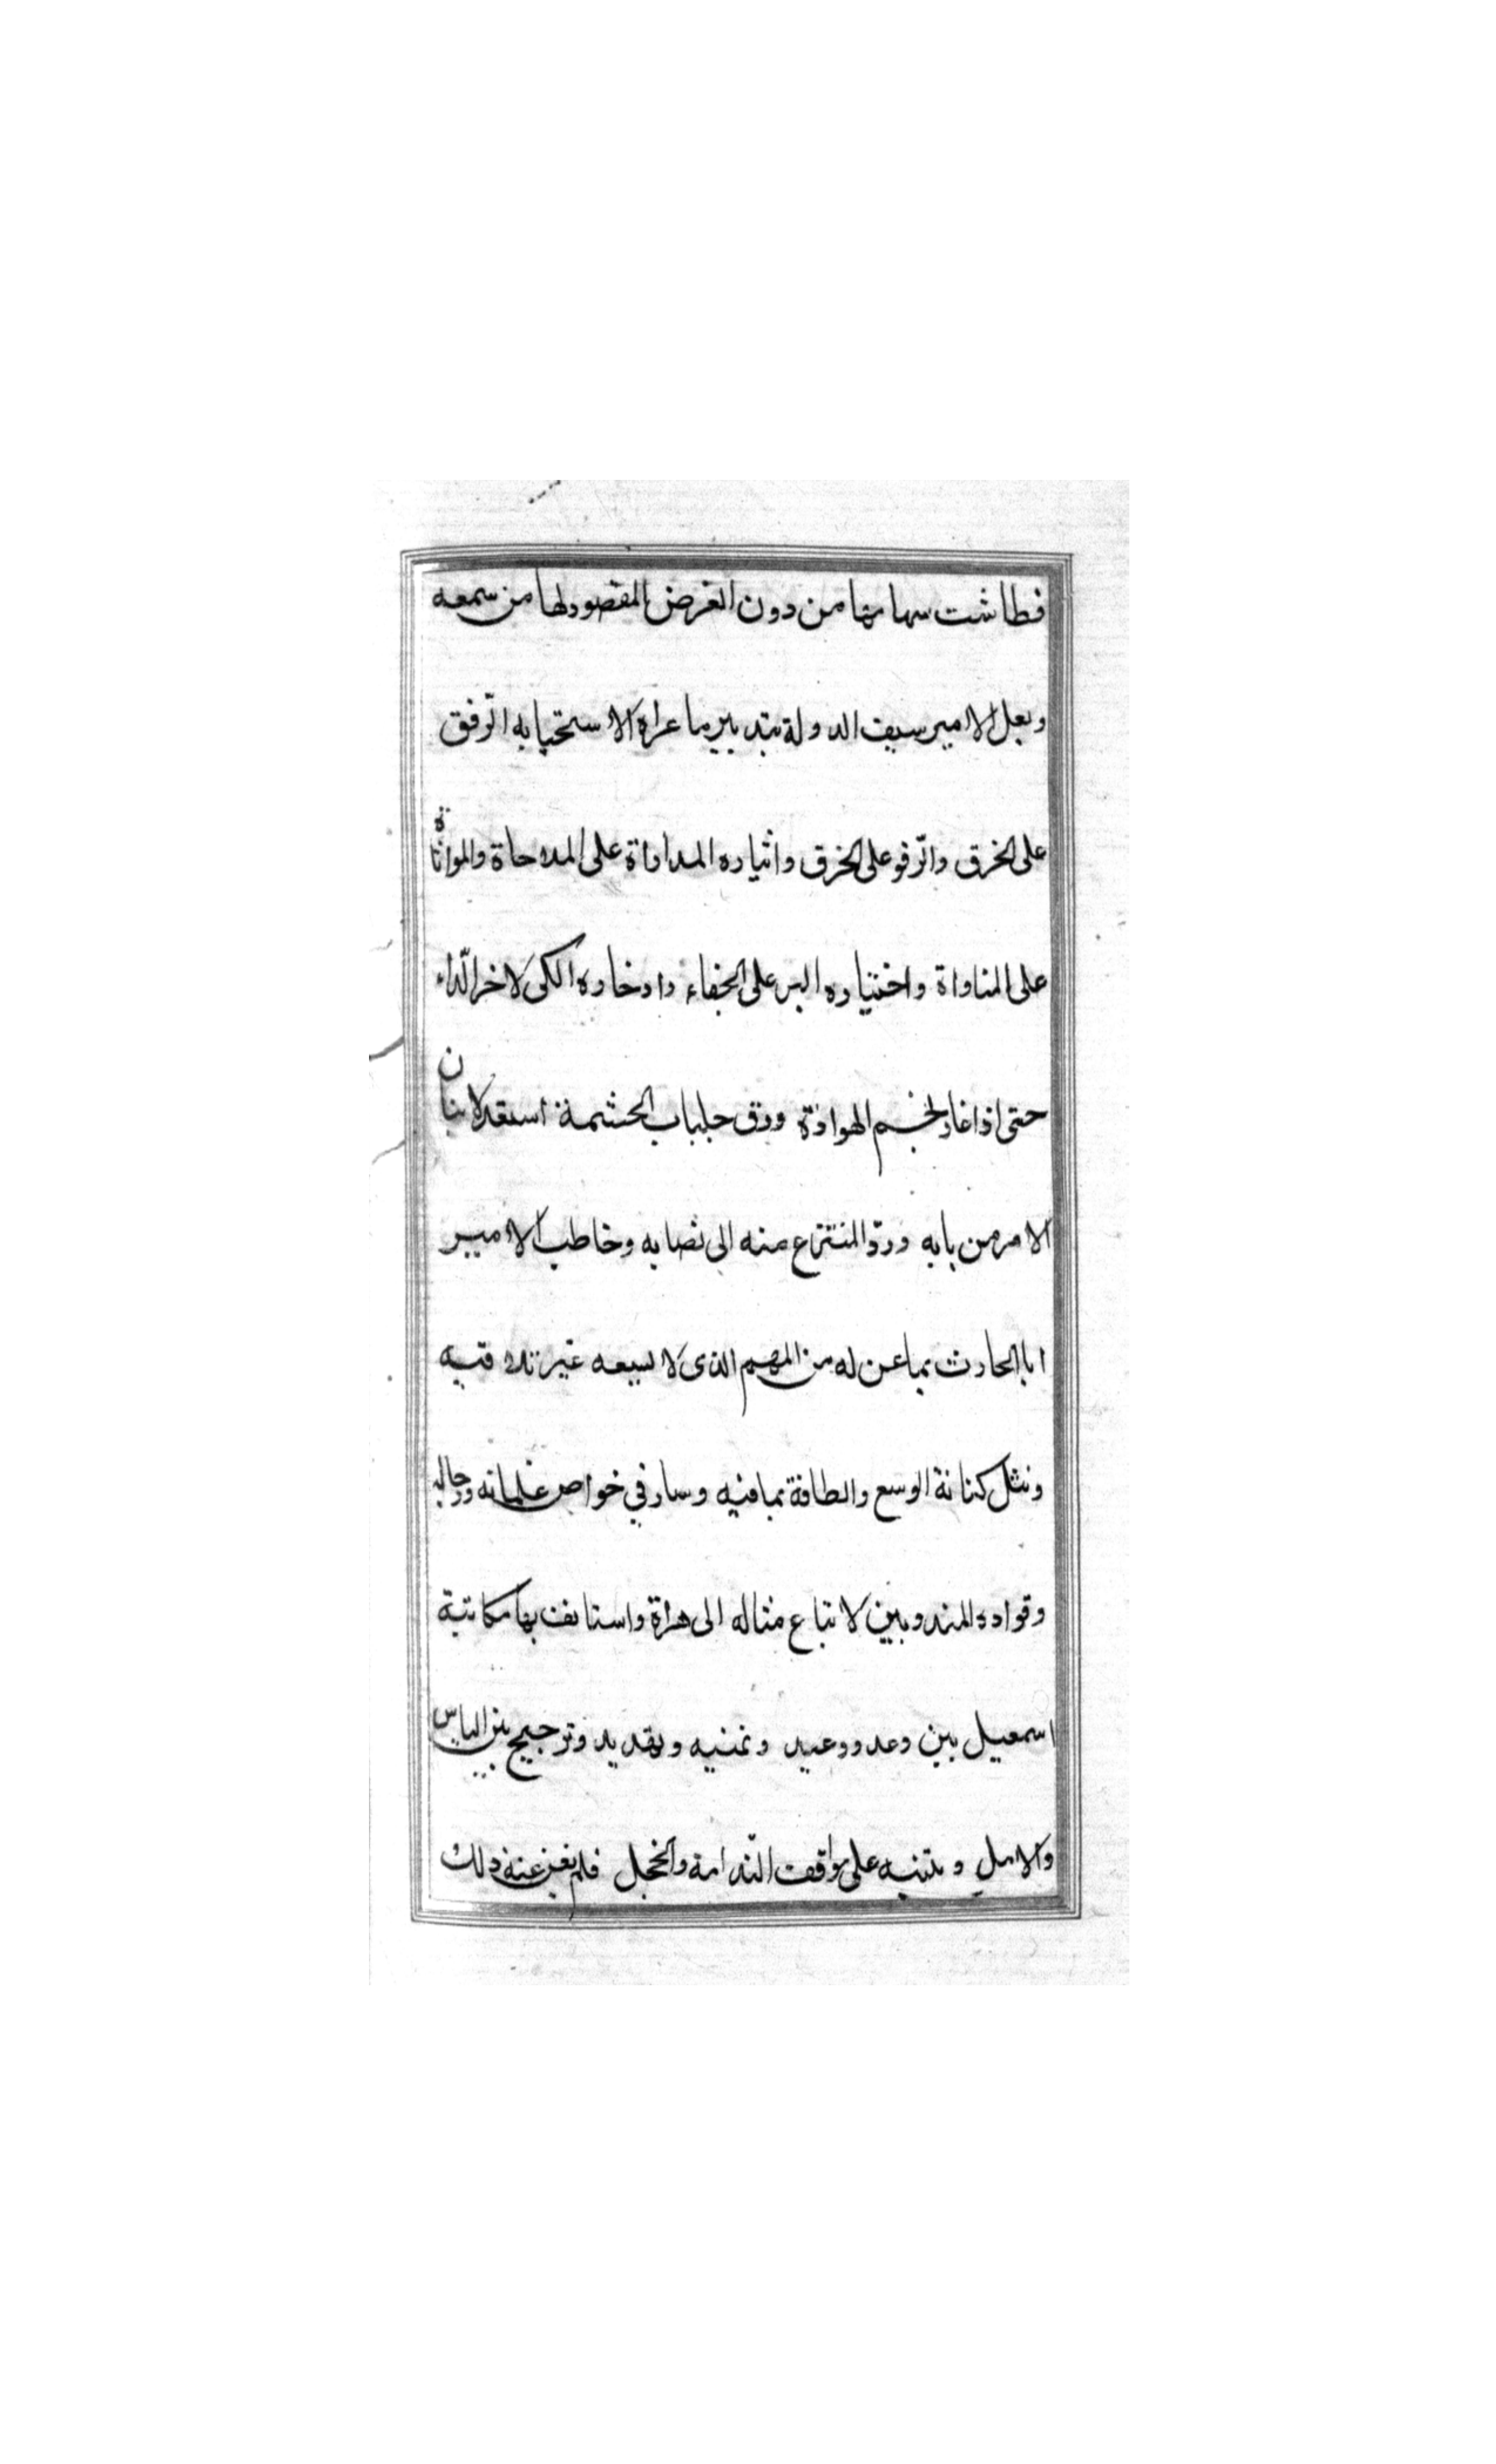 فطاشت سهامها من دون الغرض المقصود لها من سمعه
وبعل الامير سيف الدولة بتدبير ما عراه لاستحبابه الرّفق
على الخرق والرّفو على الخرق وايثاره المداواة على المداحاة والمواتاة
على المناواة واختياره البر على الجفاء وادخاره الكى لاخر الّداء
حتى اذا غار نجم الهوادة ورق جلباب الحشمة استعد لاتيان
الامر من بابه وردّ المنتزع منه الى نصابه وخاطب الامير
ابا الحارث بما عن له من المهم الذى لا يسعه غير تلافيه
ونثل كنانة الوسع والطاقة بما فيه وسار في خواص غلمانه ورجاله
وقواده المندوبين لاتباع مثاله الى هراة واستانف بها مكاتبة
اسمعيل بين وعد ووعيد وتمنيه وتهديد وترجيح بين الياس
والامل وتنبيه على مواقف النّدامة والخجل فلم يغن عنه ذلك